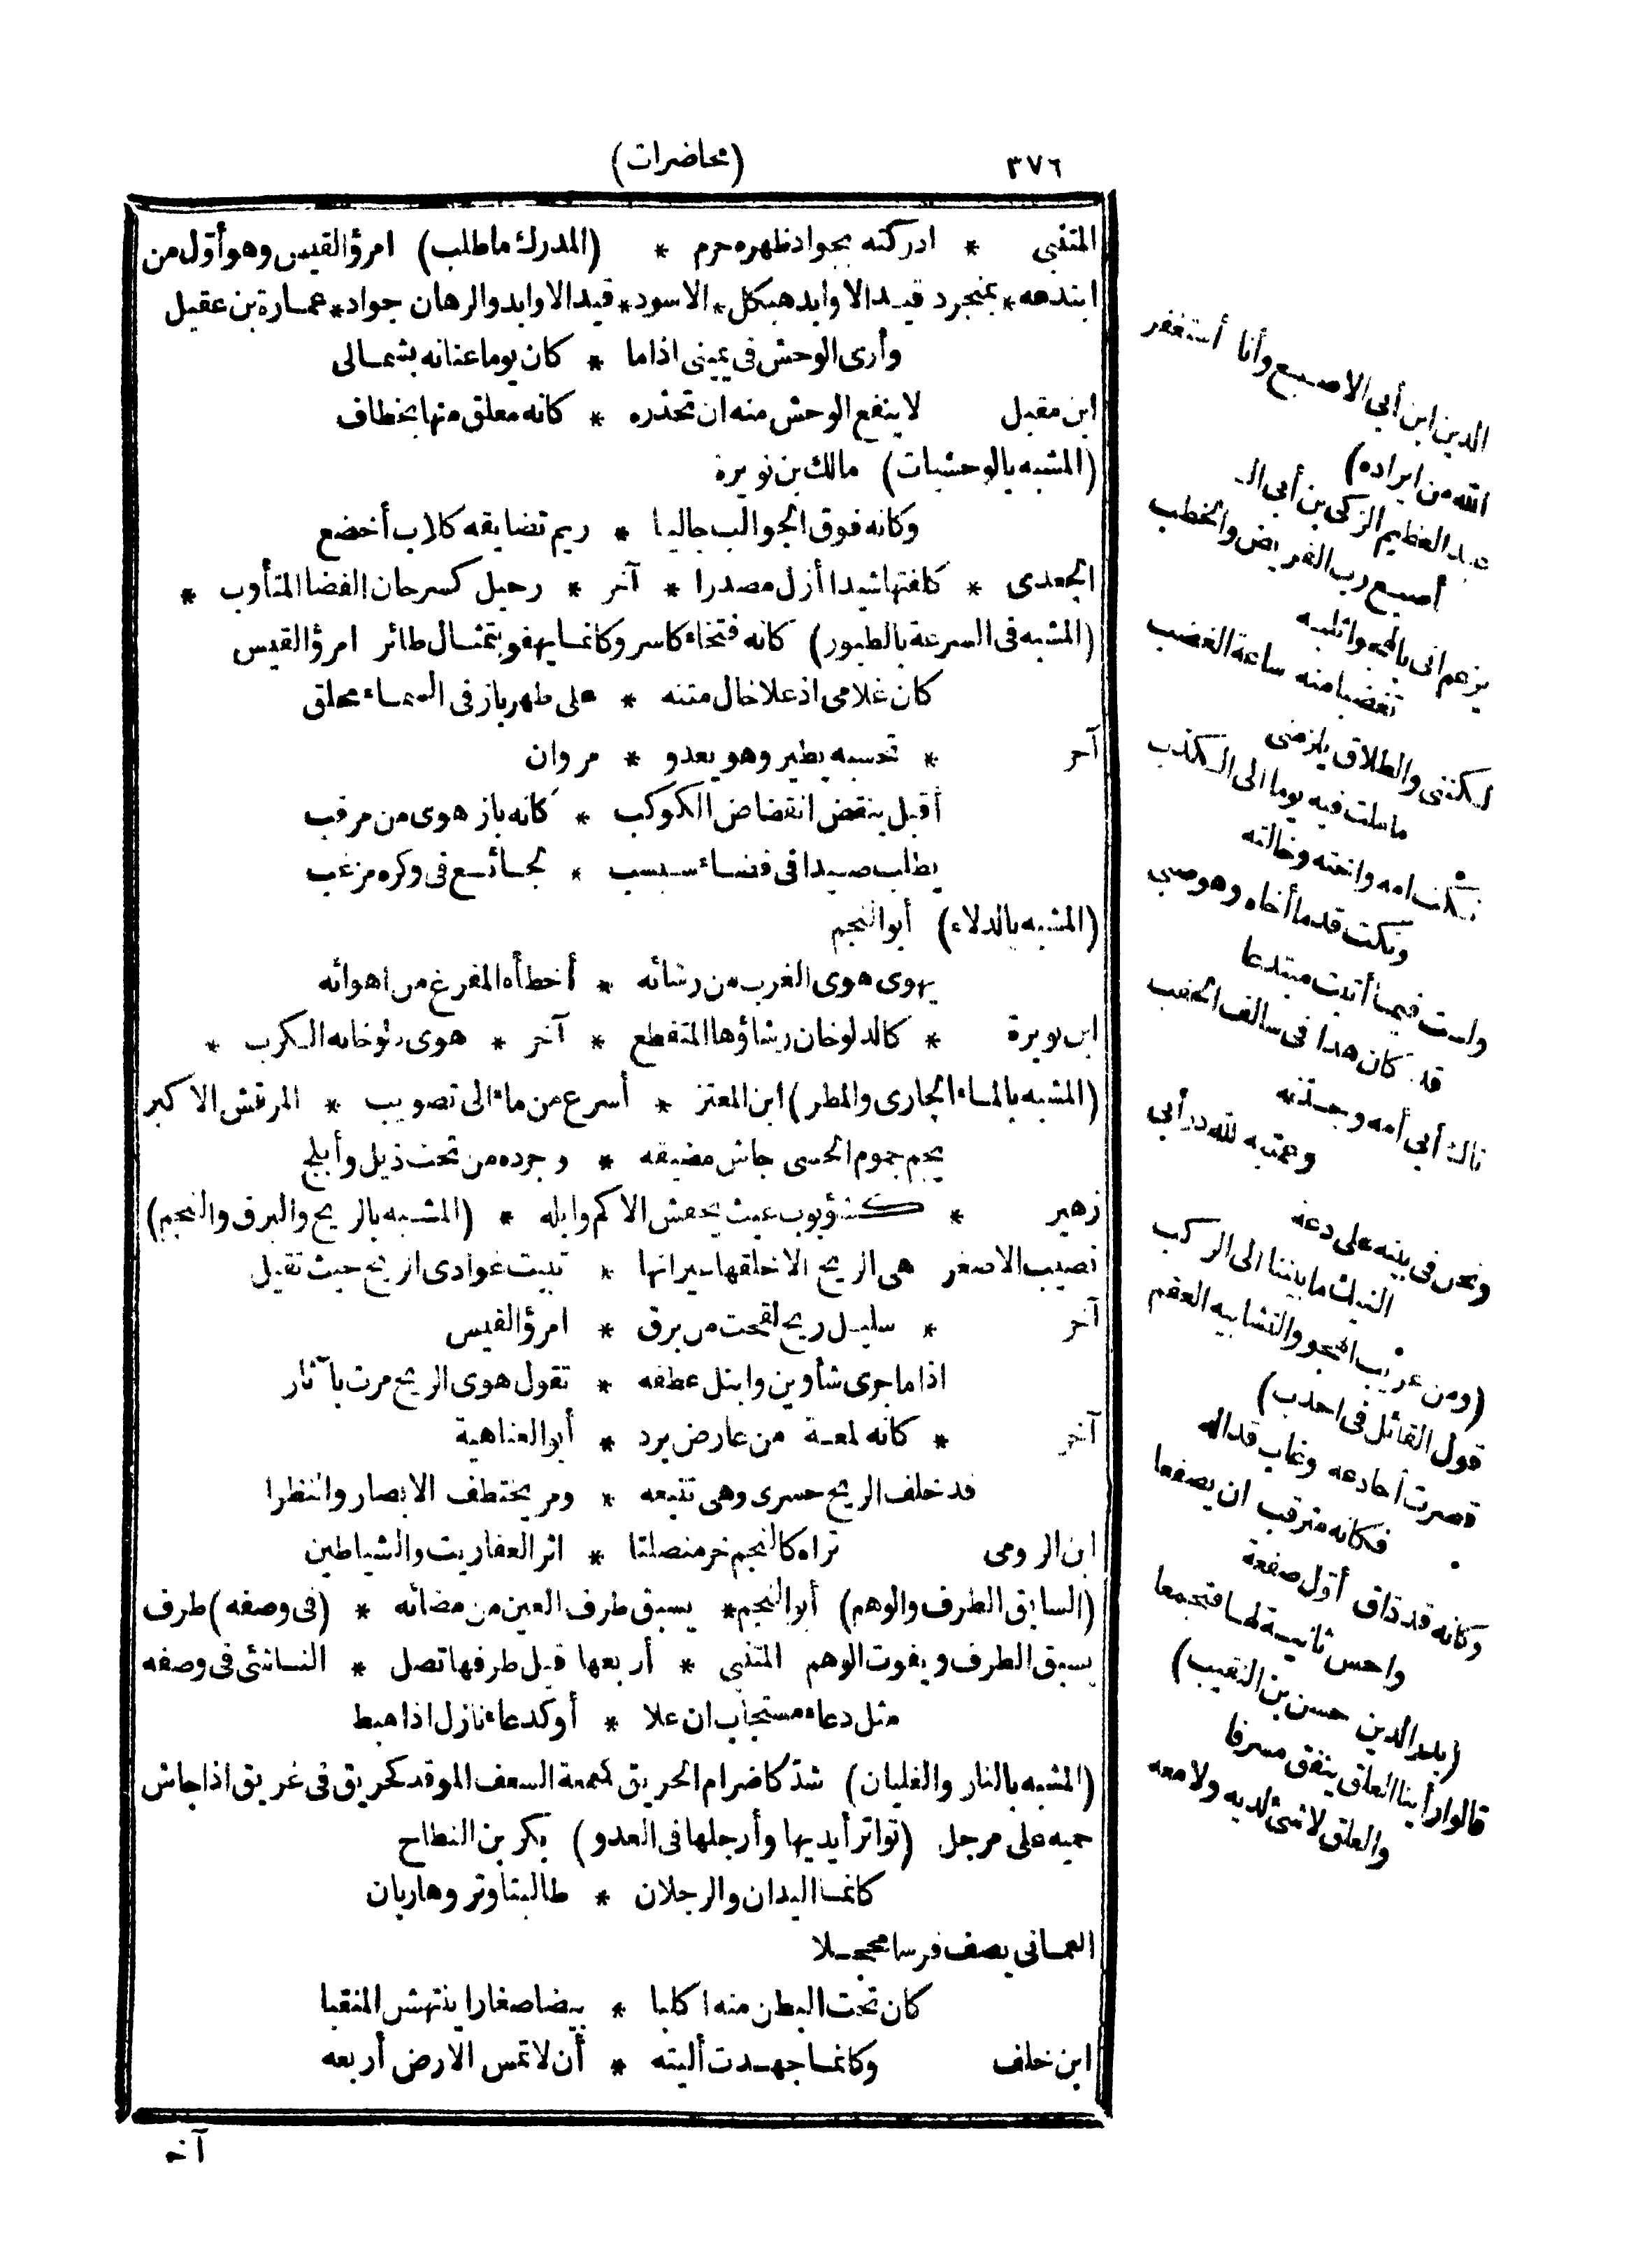 ٣٧٦
(محاضرات)
المتنبي * ادركته بجواد ظهره حرم * (المدرك ما طلب) امرؤ القيس وهو أوّل من
ابتدعه * بمنجرد قيد الاوابد هيكل * الاسود * قيد الاوابد والرهان جواد * عمارة بن عقيل
وأرى الوحش في يميني اذا ما * كان يوما عنانه بشمالى
ابن مقبل لا ينفع الوحش منه ان تحذره * كانه معلق منها بخطاف
(المشبه بالوحشيات) مالك بن نويرة
وكانه فوق الجوالب جاليا * ريم تضايقه كلاب أخضع
الجعدى * كلفتها شيدا أزل مصدرا * آخر * رحيل كسرحان الغضا المتأوب *
(المشبه فى السرعة بالطيور) كانه فتخاء كاسر وكانما يهفو بتمثال طائر امرؤ القيس
كان غلامى اذ علا حال متنه * على ظهر باز فى السماء محلق
آخر * تحسبه يطير وهو يعدو * مروان
أقبل ينقض انقضاض الكوكب * كانه باز هوى من مرقب
يطلب صيدا فى فضاء سبسب * لجائع فى وكره مزغب
(المشبه بالدلاء) أبو النجم
يهوى هوى الغرب من رشائه * أخطأه المفرغ من اهوائه
ابن نويرة * كالدلو خان رشاؤها المتقطع * آخر * هوى دلو خانه الكرب *
(المشبه بالماء الجارى والمطر) ابن المعتز * أسرع من ماء الى تصويب * المرقش الاكبر
يجم جموم الحسى جاش مضيقه * وجرده من تحت ذيل وأبلج
زهير * كشؤبوب غيث يحفش الاكم وابله * (المشبه بالريح والبرق والنجم)
نصيب الاصغر هى الريح الا خلقها سيرانها * تبيت غوادى الريح حيث تقيل
آخر * سليل ريح لقحت من برق * امرؤ القيس
اذا ما جرى شأوين وابتل عطفه * تقول هوى الريح مرت بآثار
آخر * كانه لمعة من عارض برد * أبو العتاهية
قد خلف الريح حسرى وهى تتبعه * ومر يختطف الابصار والنظرا
ابن الرومى تراه كالنجم خر منصلتا * اثر العفاريت والشياطين
(السابق الطرف والوهم) أبو النجم * يسبق طرف العين من مضائه * (فى وصفه) طرف
يسبق الطرف ويفوت الوهم المتنبي * أربعها قبل طرفها تصل * الناشئ فى وصفه
مثل دعاء مستجاب ان علا * أو كدعاء نازل اذا هبط
(المشبه بالنار والغليان) شدّ كاضرام الحريق كمعمعة السعف الموقد كحريق فى غريق اذا جاش
حميه على مرجل (تواتر أيديها وأرجلها فى العدو) بكر بن النطاح
كانما اليدان والرجلان * طالبتا وتر وهاربان
العمانى يصف فرسا محجلا
كان تحت البطن منه اكلبا * بيضا صغارا ينتهشن المنقبا
ابن خلف وكانما جهدت أليته * أن لا تمس الارض أربعه
آخـ
الدين ابن أبى الاصبع وأنا أستغفر
الله من ايراده)
عبد العظيم الزكى بن أبى الـ
أصبع رب القريض والخطب
يزعم انى بالهجو اثلبه
تغضبا منه ساعة الغضب
لكننى والطلاق يلزمنى
ما ملت فيه يوما الى الكذب
نكت امه واخته وخالته
ونكت قدما أخاه وهو صبى
ولست فيما أتيت مبتدعا
قد كان هذا فى سالف الحقب
ناك أبى أمه وجدته
وعمته لله در أبى
ونحن فى بيته على دعة
النيك ما بيننا الى الركب
(ومن غريب الهجو والتشابيه العقم
قول القائل فى احدب)
قصرت أخادعه وغاب قذاله
فكانه مترقب ان يصفعا
وكانه قد ذاق أوّل صفعة
واحس ثانية لها فتجمعا
(بدر الدين حسن بن النقيب)
قالوا رأينا العلق ينفق مسرفا
والعلق لا شئ لديه ولا معه